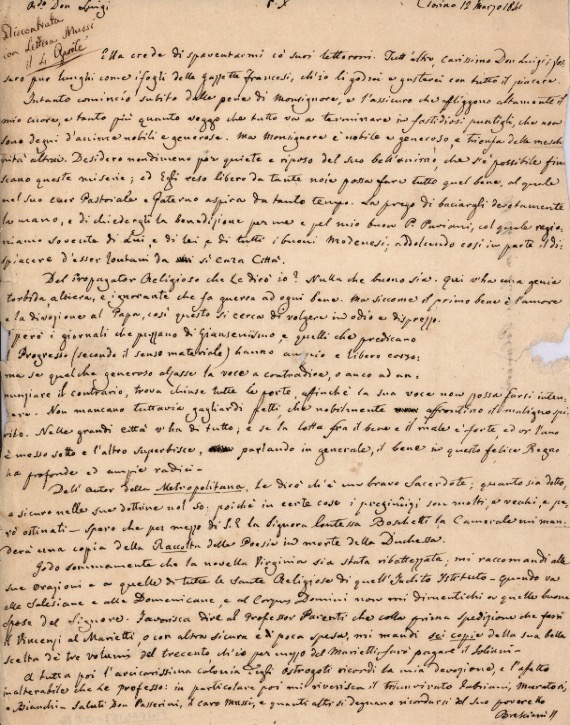 A.do Don Luigi P. X Torino 12 Marzo 1841
Discontrata
con lettera Mussi
il 4 Aprile
Ella crede di spaventarmi co' suoi letteroni. Tutt'altro, carissimo Don Luigi; fos-
sero pur lunghi come i fogli delle gazzette francesi, ch'io li godrei e gusterei con tutto il piacere.
Intanto comincio subito dalle pene di Monsignore, e l'assicuro che affliggono altamente il
mio cuore, e tanto più quanto veggo che tutto va a terminare in fastidiosi puntigli, che non
sono degni d'anime nobili e generose. Ma Monsignore è nobile e generoso, e trionfa delle mesch
nità altrui. Desidero nondimeno per quiete e riposo del suo bell'animo, che s'è possibile fini
scano queste miserie; ed Egli reso libero da tante noie possa fare tutto quel bene, al quale
nel suo cuor Pastorale e Paterno aspira da tanto tempo. La prego di baciargli devotamente
la mano, e di chiedergli la benedizione per me e pel mio buon P. Puriani, col quale ragio-
niamo sovente di Lui, e di lei e di tutti i buoni Modenesi, addolcendo così in parte il di-
spiacere d'esser lontani da si cara Città.
Del Propagator Religioso che le dirò io? Nulla che buono sia. Qui v'ha una genia
torbida altiera, e ignorante che fa guerra ad ogni bene. Ma siccome il primo bene è l'amore
e la divozione al Papa, così questo si cerca di volgere in odio e dispregio.
però i giornali che puzzano di Giansenismo, e quelli che predicano
Progresso (secondo il senso materiale) hanno ampio e libero corso:
ma se qualche generoso alzasse la voce a contraddire, o anco ad an-
nunziare il contrario, trova chiuse tutte le porte, affinchè la sua voce non possa farsi inten-
dere. Non mancano tuttavia gagliardi petti, che nobilmente affrontino il maligno spi-
rito. Nelle grandi città v'ha di tutto; e se la lotta fra il bene e il male è forte, ed or l'uno
è mosso sotto e l'altro superbisce, parlando in generale, il bene in questo felice Regno
ha profonde ed ampie radici-
Dell'autor della Metropolitana. Le dirò ch'è un bravo Sacerdote; quanto sia dotto,
e sicuro nelle sue dottrine nol so: poichè in certe cose i pregiudizi son molti, e vecchi, e pe-
rò ostinati - Spero che per mezzo di S.E. la Signora Contessa Boschetti la Camerale mi man-
derà una copia della Raccolta delle Poesie in morte della Duchessa.
Godo sommamente che la novella Virginia sia stata ribattezzata; mi raccomandi alle
sue orazioni e a quelle di tutte le Sante Religiose di quell'Inclito Istituto - Quando va
alle Salesiane e alle Domenicane, e al Corpus Domini non mi dimentichi a quelle buone
Spose del Signore. Favorisca dire al Professor Parenti che colla prima spedizione che farà
il Vincenzi al Marietti, o con altra sicura e di poca spesa, mi mandi sei copie della sua bella
scelta de' tre volumi del trecento ch'io per mezzo del Marietti farò pagare il Soliani -
A tutta poi l'amicissima colonia degli ostrogoti ricordi la mia devozione, e l'affetto
inalterabile che le professo: in particolare poi mi riverisca il triumvirato Fabriani, Muratori,
e Bianchi - Saluti Don Passerini, il caro Mussi, e quanti altri si degnano ricordarsi del suo poveretto
Bresciani